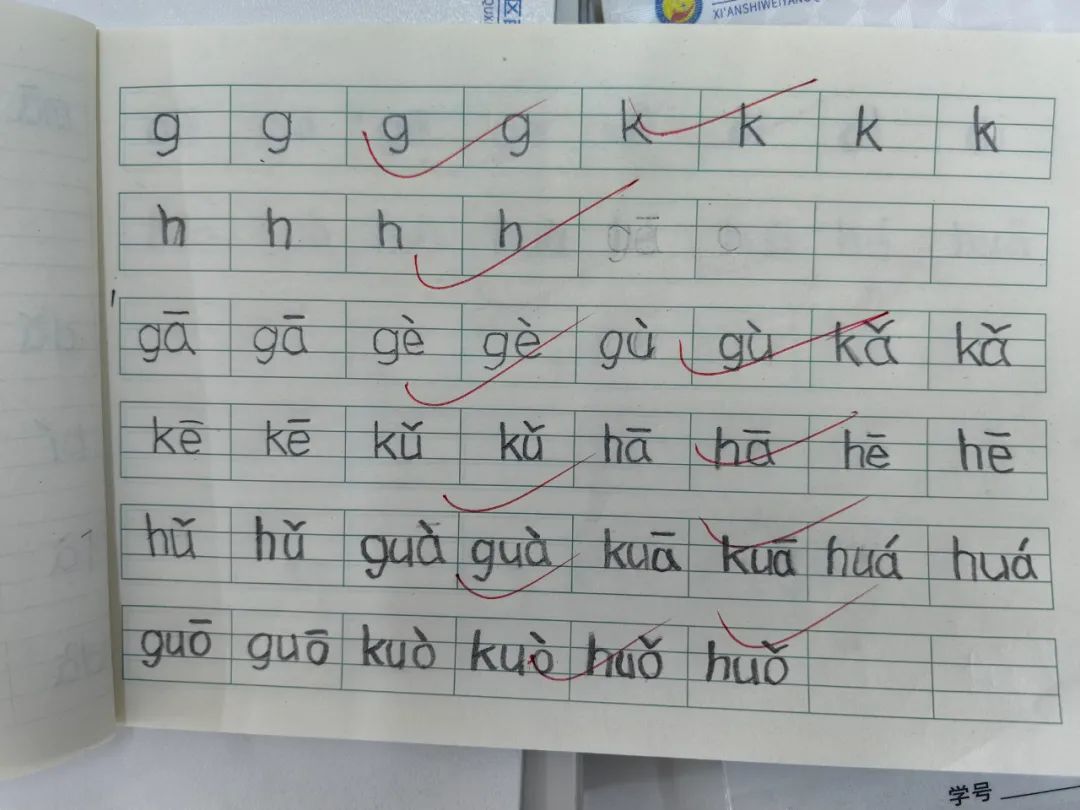 XI'ANSHIWEIYANGQ
g g g g k k k k
h h h h
gā gā gè gè gù gù kǎ kǎ
kē kē kǔ kǔ hā hā hē hē
hǔ hǔ guà guà kuā kuā huá huá
guō guō kuò kuò huǒ huǒ
学号